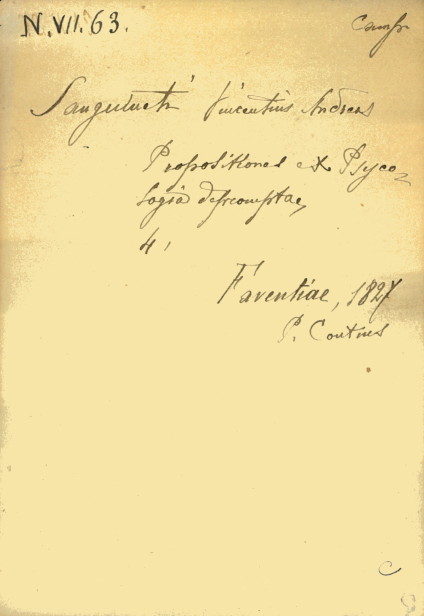 N.VII.63.
Vincentius Andreas
Propositiones ex Psyco=
logiâ depromptae,
4,
Faventiae, 1827
P. Contius
C